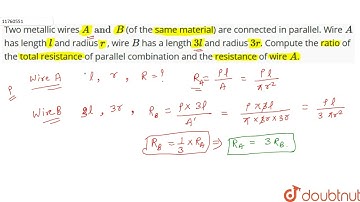 11760551
Two metallic wires A and B (of the same material) are connected in parallel. Wire A
has length l and radius r, wire B has a length 3l and radius 3r. Compute the ratio of
the total resistance of parallel combination and the resistance of wire A.
Wire A l, r, R = ? R_A = ρl / A = ρl / πr²
Wire B 3l, 3r, R_B = ρ × 3l / A' = ρ × 3l / π × 3r × 3r = ρl / 3 πr²
R_B = 1/3 × R_A ⇒ R_A = 3 R_B
doubtnut